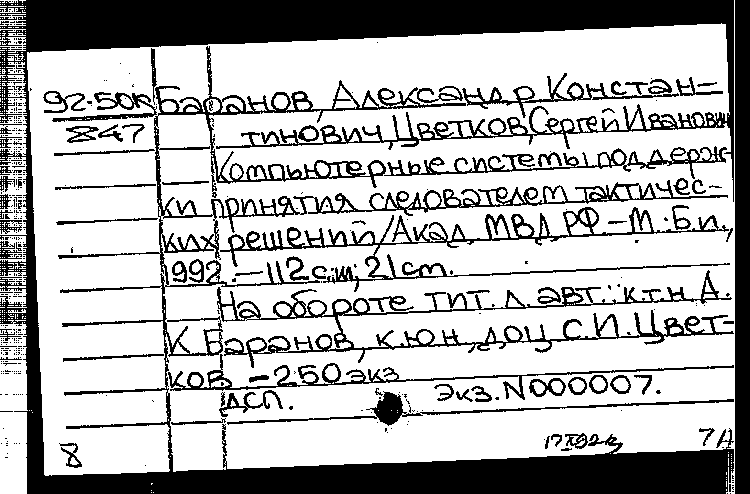 92-50к Баранов, Александр Констан=
847 тинович, Цветков, Сергей Иванович
Компьютерные системы поддерж-
ки принятия следователем тактичес-
ких решений/Акад. МВД РФ.-М.:Б.и.,
1992.-112с.:ил; 21 см.
На обороте тит. л. авт.: к.т.н А.
К. Баранов, к.ю.н, доц С.И. Цвет=
ков -250 экз
ДСП. Экз. N000007.
8 7А